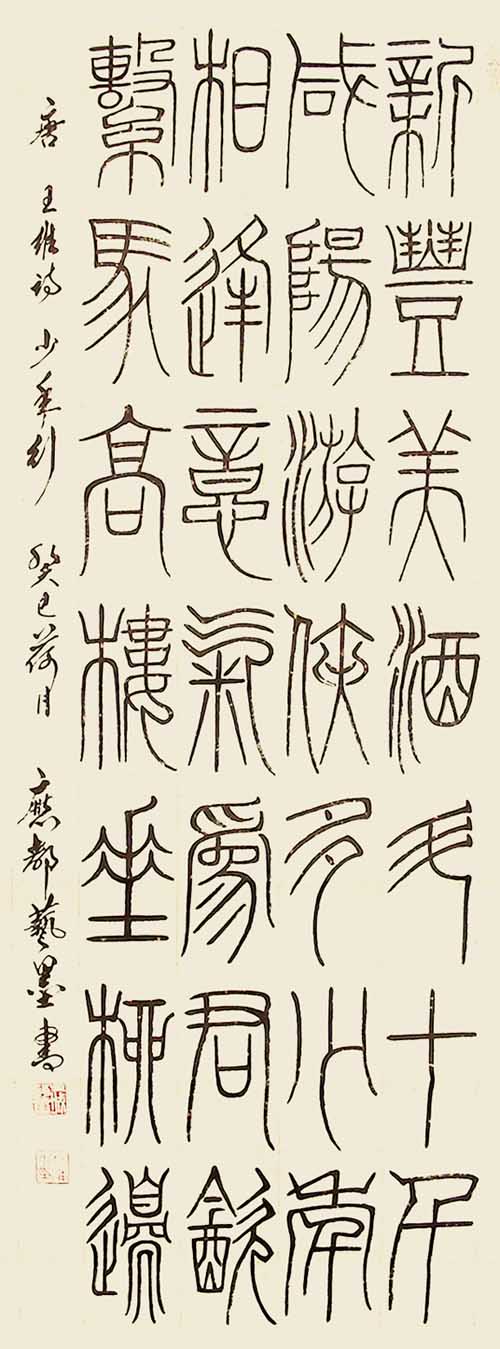 新豐美酒斗十千
咸陽游俠多少年
相逢意氣爲君飲
繫馬高樓垂柳邊
唐 王維詩 少年行 癸巳荷月 應都藝墨書